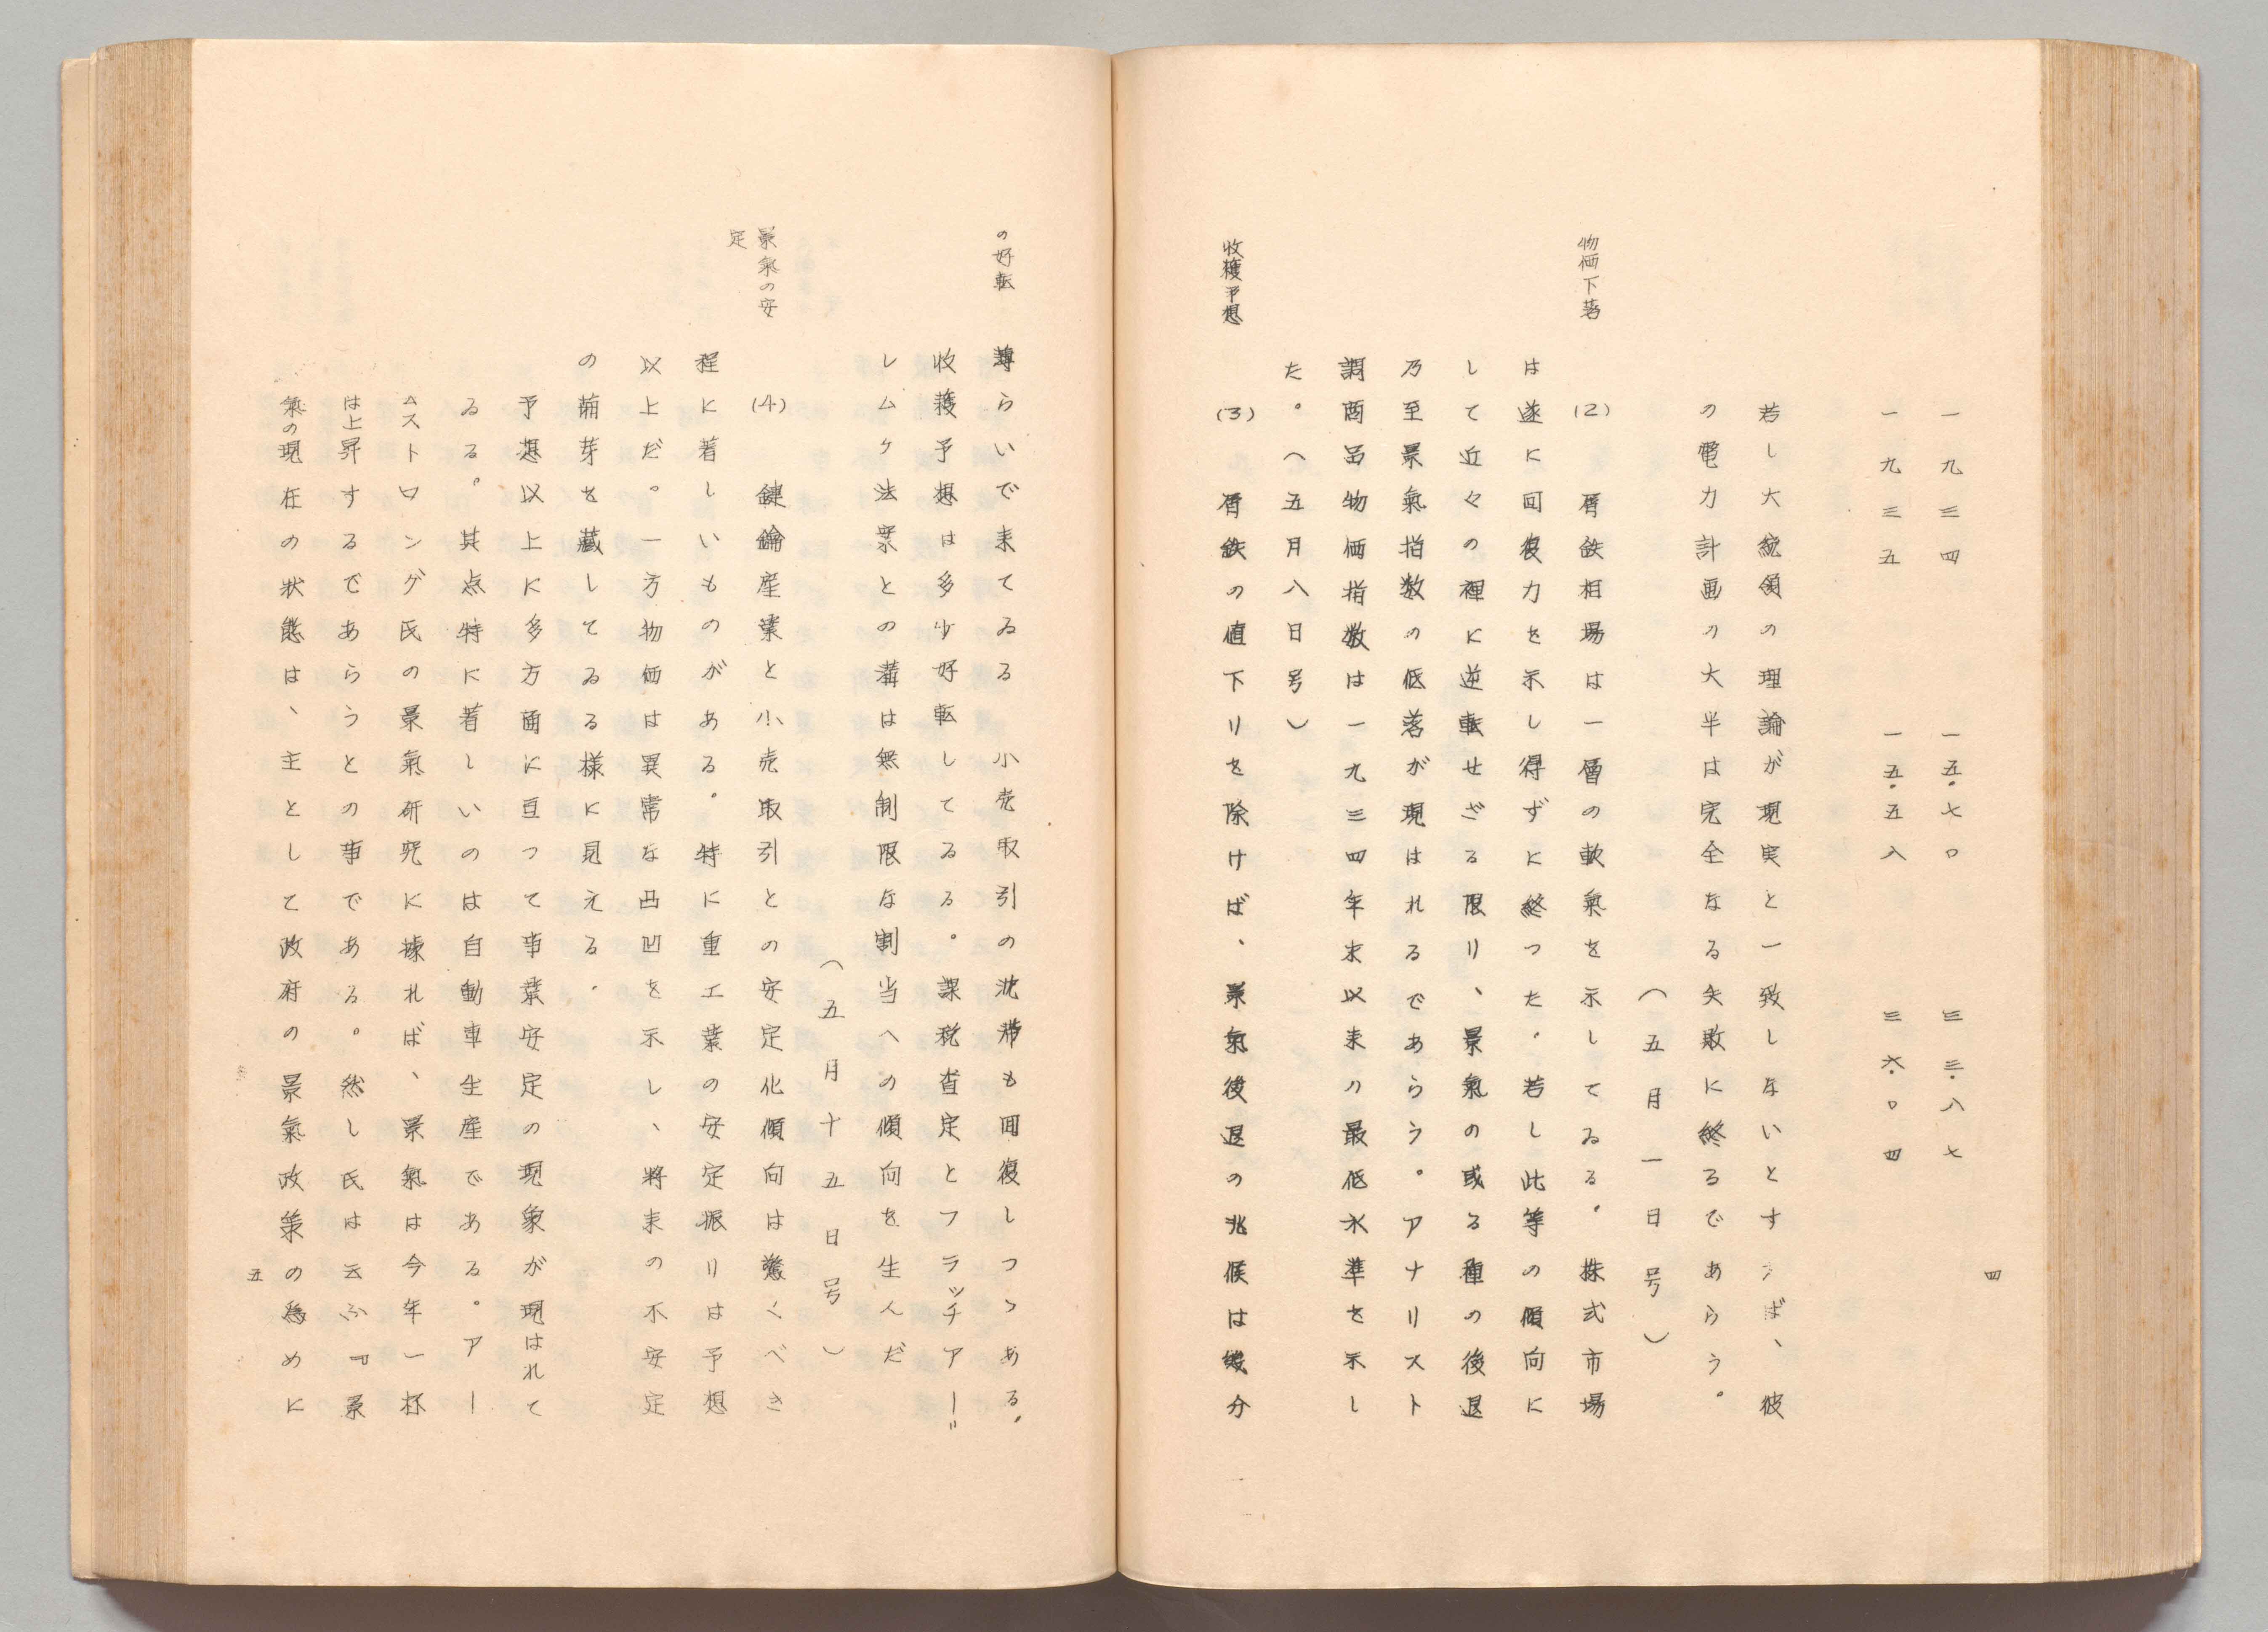 四
一九三四　一五・七〇　三三・八七
一九三五　一五・五八　三六・〇四
若し大統領の理論が現実と一致しないとすれば、彼
の電力計画の大半は完全なる失敗に終るであらう。
（五月一日号）
物価下落
(2)　屑鉄相場は一層の軟氣を示してゐる。株式市場
は遂に回復力を示し得ずに終つた。若し此等の傾向に
して近々の裡に逆転せざる限り、景氣の或る種の後退
乃至景氣指数の低落が現はれるであらう。アナリスト
調商品物価指数は一九三四年末以来の最低水準を示し
た。（五月八日号）
收穫予想
(3)　屑鉄の値下りを除けば、景氣後退の兆候は幾分
の好転
薄らいで来てゐる　小売取引の沈滞も回復しつゝある。
收穫予想は多少好転してゐる。課税査定とフラッチアー＝
レムケ法案との溝は無制限な割当への傾向を生んだ
（五月十五日号）
景氣の安
定
(4)　鏈鑰産業と小売取引との安定化傾向は驚くべき
程に著しいものがある。特に重工業の安定振りは予想
以上だ。一方物価は異常な凸凹を示し、将来の不安定
の萠芽を藏してゐる様に見える。
予想以上に多方面に亘つて事業安定の現象が現はれて
ゐる。其点特に著しいのは自動車生産である。アー
ムストロング氏の景氣研究に據れば、景氣は今年一杯
は上昇するであらうとの事である。然し氏は云ふ『景
氣の現在の状態は、主として政府の景氣政策の為めに
五